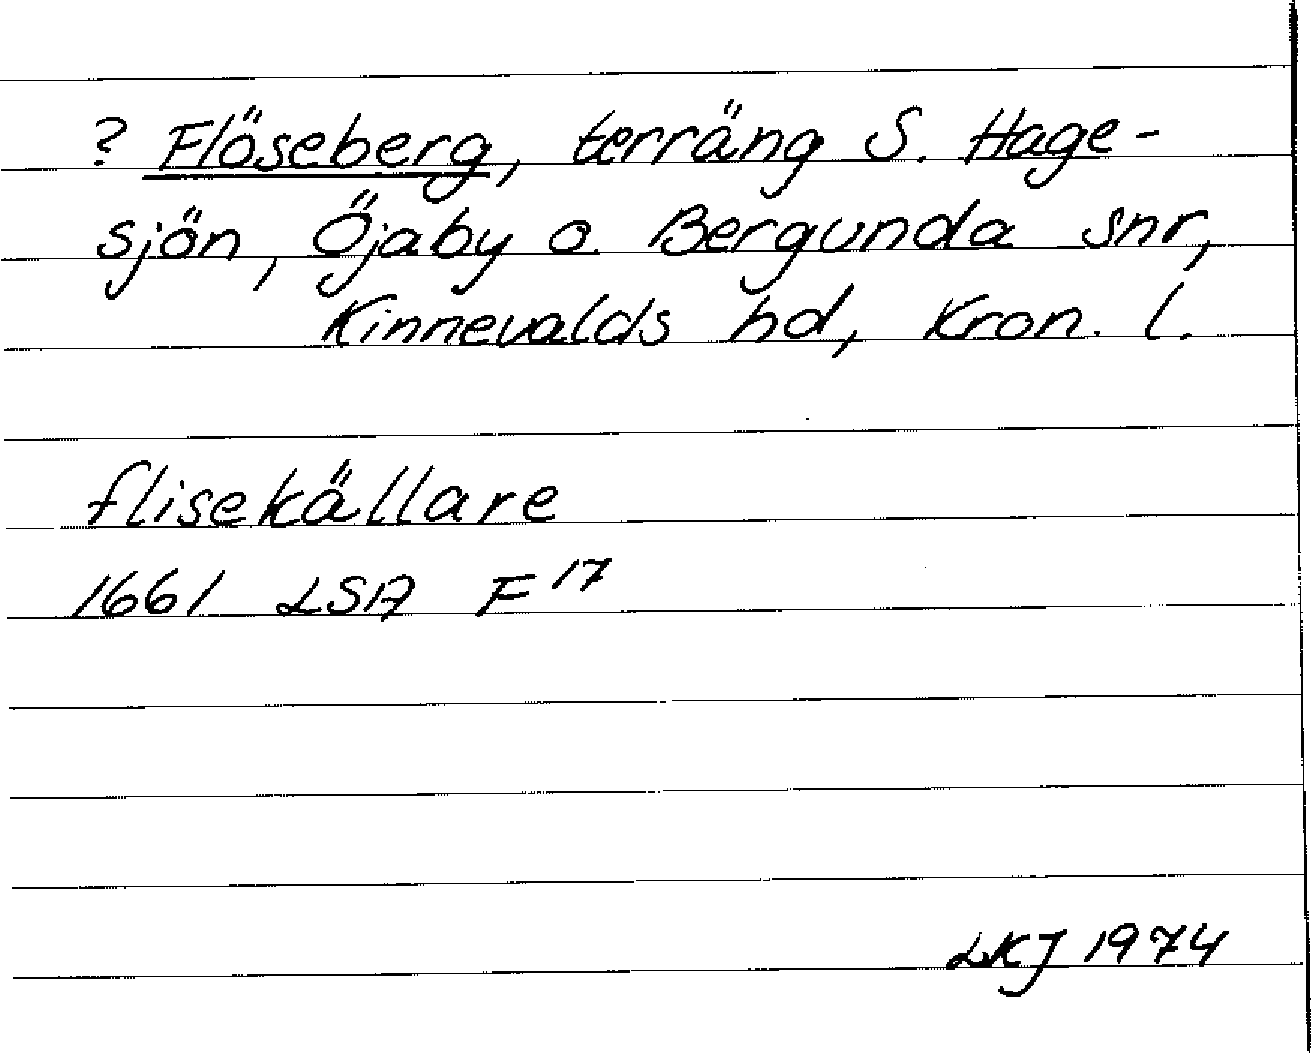 ? Flöseberg, terräng S. Hage-
sjön, Öjaby o. Bergunda snr,
Kinnevalds hd, Kron. l.
flisekällare
1661 LSA F 17
LKJ 1974